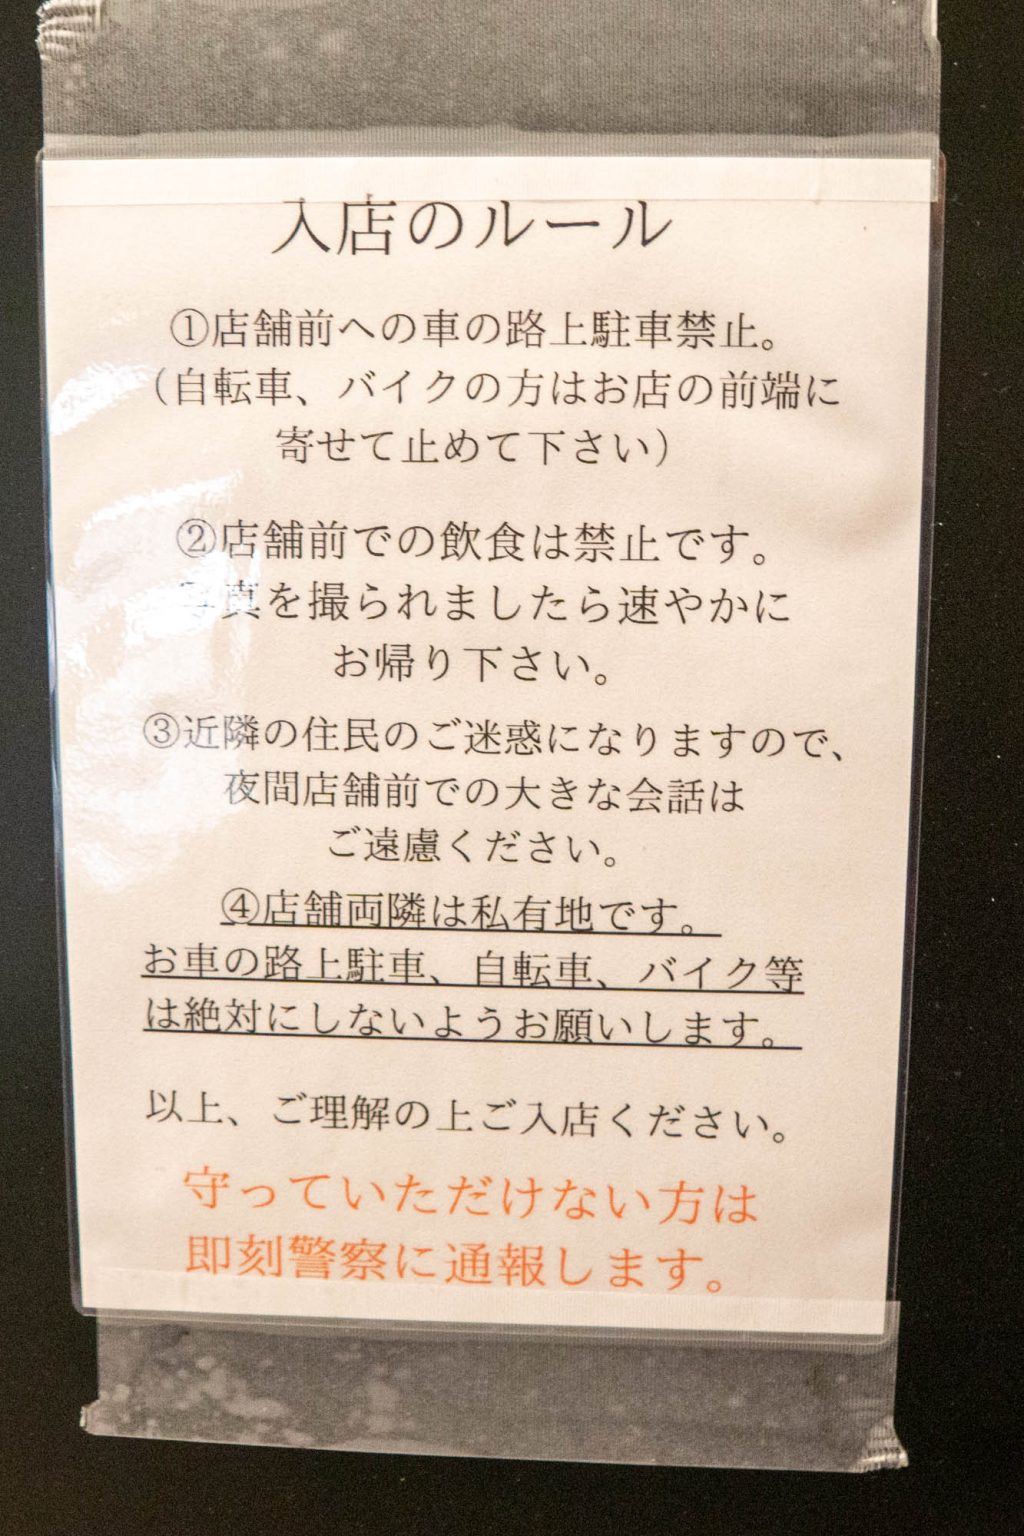 入店のルール
①店舗前への車の路上駐車禁止。
（自転車、バイクの方はお店の前端に
寄せて止めて下さい）
②店舗前での飲食は禁止です。
写真を撮られましたら速やかに
お帰り下さい。
③近隣の住民のご迷惑になりますので、
夜間店舗前での大きな会話は
ご遠慮ください。
④店舗両隣は私有地です。
お車の路上駐車、自転車、バイク等
は絶対にしないようお願いします。
以上、ご理解の上ご入店ください。
守っていただけない方は
即刻警察に通報します。